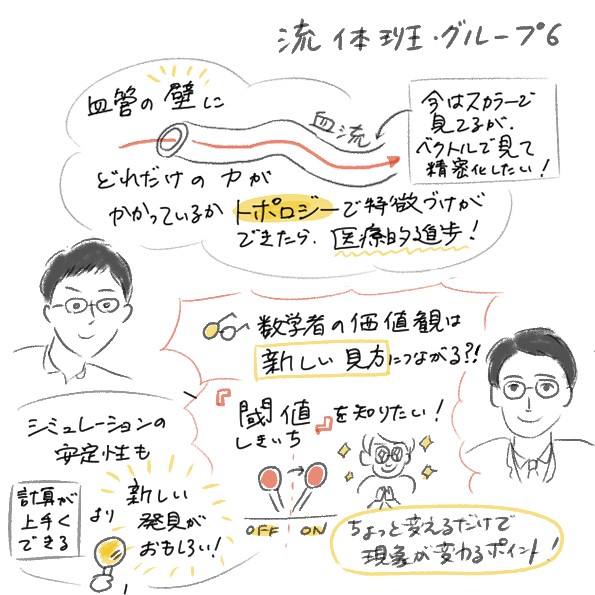 流体班・グループ6
血管の壁に
血流
今はスカラーで
見てるが、
ベクトルで見て
精密化したい！
どれだけの力が
かかっているかトポロジーで特徴づけが
できたら、医療的進歩！
数学者の価値観は
新しい見方につながる?!
『閾値』を知りたい！
しきいち
シミュレーションの
安定性も
計算が
上手く
できる
より
新しい
発見が
おもしろい！
OFF ON
ちょっと変えるだけで
現象が変わるポイント！